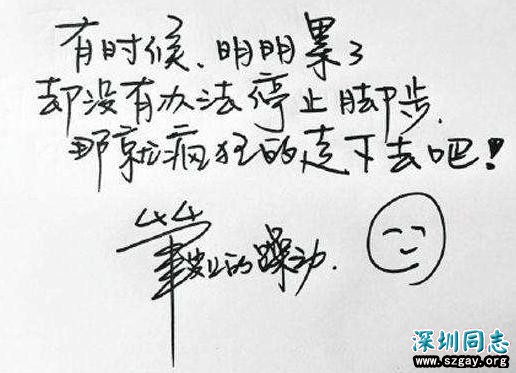 有时候、明明累了
却没有办法停止脚步.
那就疯狂的走下去吧!
筆上的躁动.
深圳同志
www.szgay.org